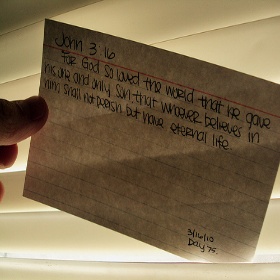 John 3:16
for God so loved the world that he gave
his one and only son, that whoever believes in
him shall not perish but have eternal life.
3/16/10
Day 75.